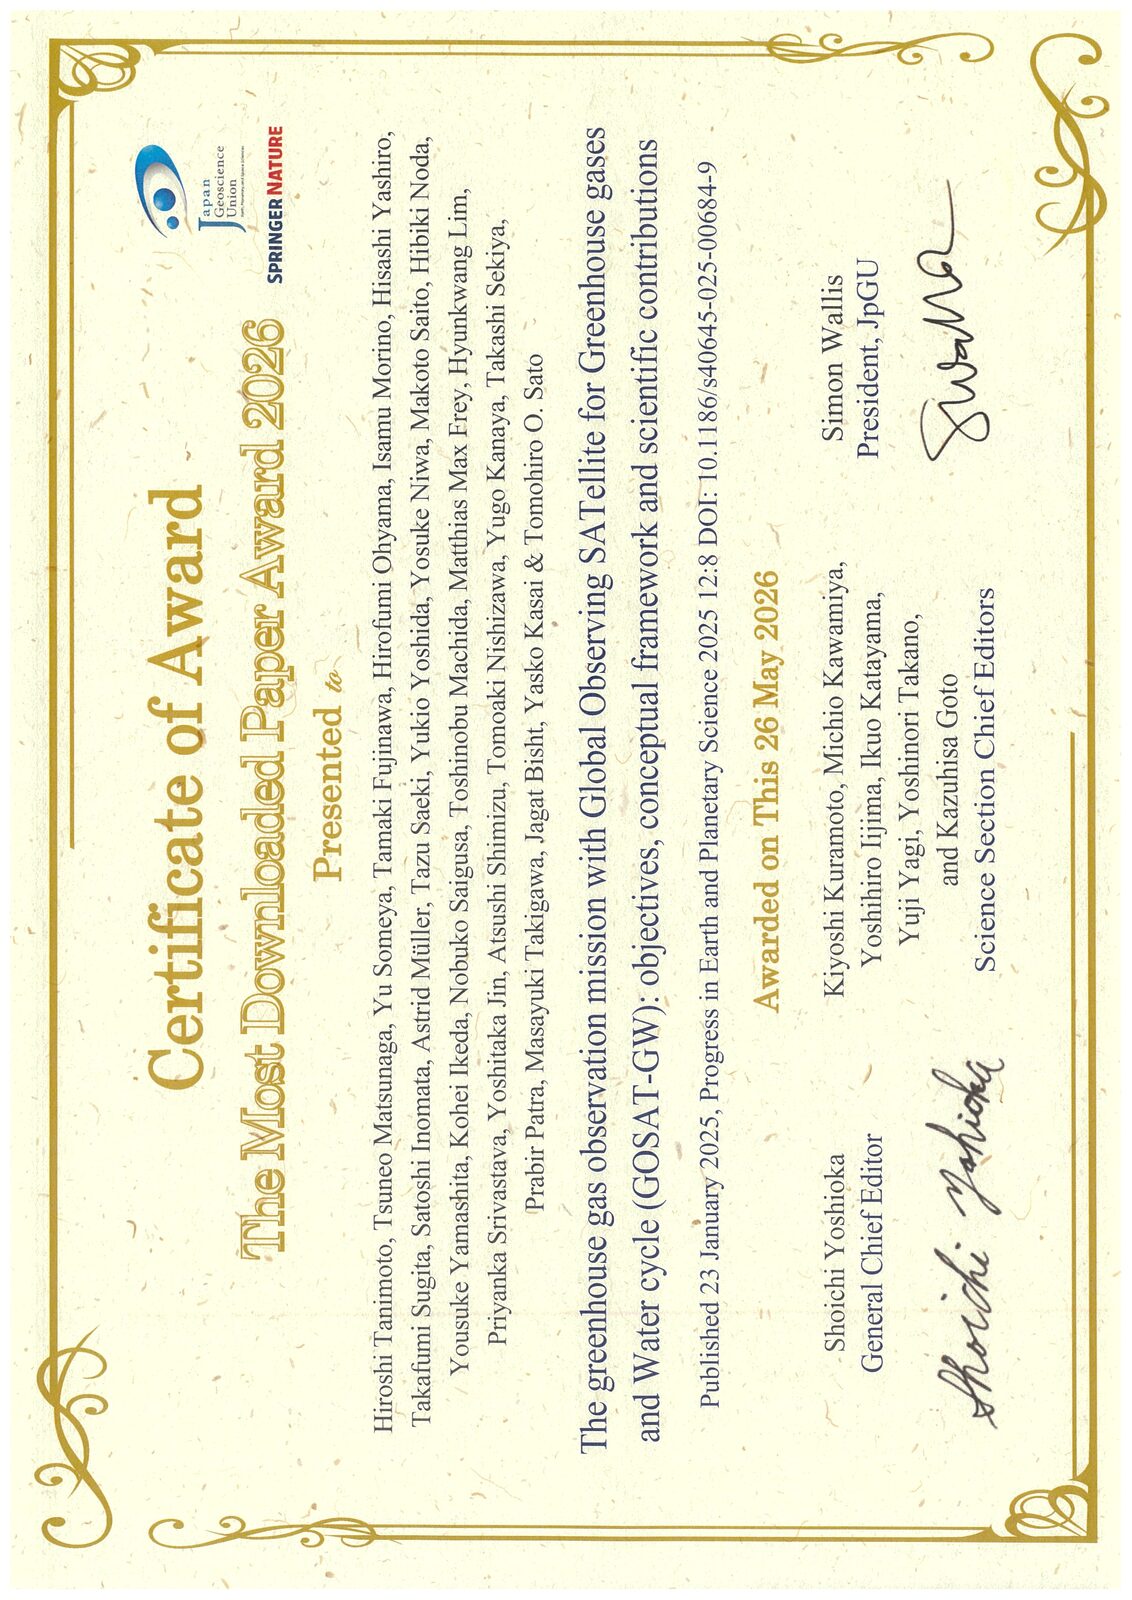 Japan
Geoscience
Union
SPRINGER NATURE
Certificate of Award
The Most Downloaded Paper Award 2026
Presented to
Hiroshi Tanimoto, Tsuneo Matsunaga, Yu Someya, Tamaki Fujinawa, Hirofumi Ohyama, Isamu Morino, Hisashi Yashiro,
Takafumi Sugita, Satoshi Inomata, Astrid Müller, Tazu Saeki, Yukio Yoshida, Yosuke Niwa, Makoto Saito, Hibiki Noda,
Yousuke Yamashita, Kohei Ikeda, Nobuko Saigusa, Toshinobu Machida, Matthias Max Frey, Hyunkwang Lim,
Priyanka Srivastava, Yoshitaka Jin, Atsushi Shimizu, Tomoaki Nishizawa, Yugo Kanaya, Takashi Sekiya,
Prabir Patra, Masayuki Takigawa, Jagat Bisht, Yasko Kasai & Tomohiro O. Sato
The greenhouse gas observation mission with Global Observing SATellite for Greenhouse gases
and Water cycle (GOSAT-GW): objectives, conceptual framework and scientific contributions
Published 23 January 2025, Progress in Earth and Planetary Science 2025 12:8 DOI: 10.1186/s40645-025-00684-9
Awarded on This 26 May 2026
Shoichi Yoshioka
General Chief Editor
Shoichi Yoshioka
Kiyoshi Kuramoto, Michio Kawamiya,
Yoshihiro Iijima, Ikuo Katayama,
Yuji Yagi, Yoshinori Takano,
and Kazuhisa Goto
Science Section Chief Editors
Simon Wallis
President, JpGU
SWallis